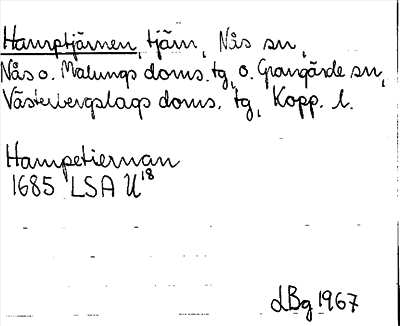 Hamptjärnen, tjärn, Nås sn,
Nås o. Malungs doms. tg, o. Grangärde sn,
Västerbergslags doms. tg, Kopp. l.
Hampetiernan
1685 LSA U18
LBg 1967